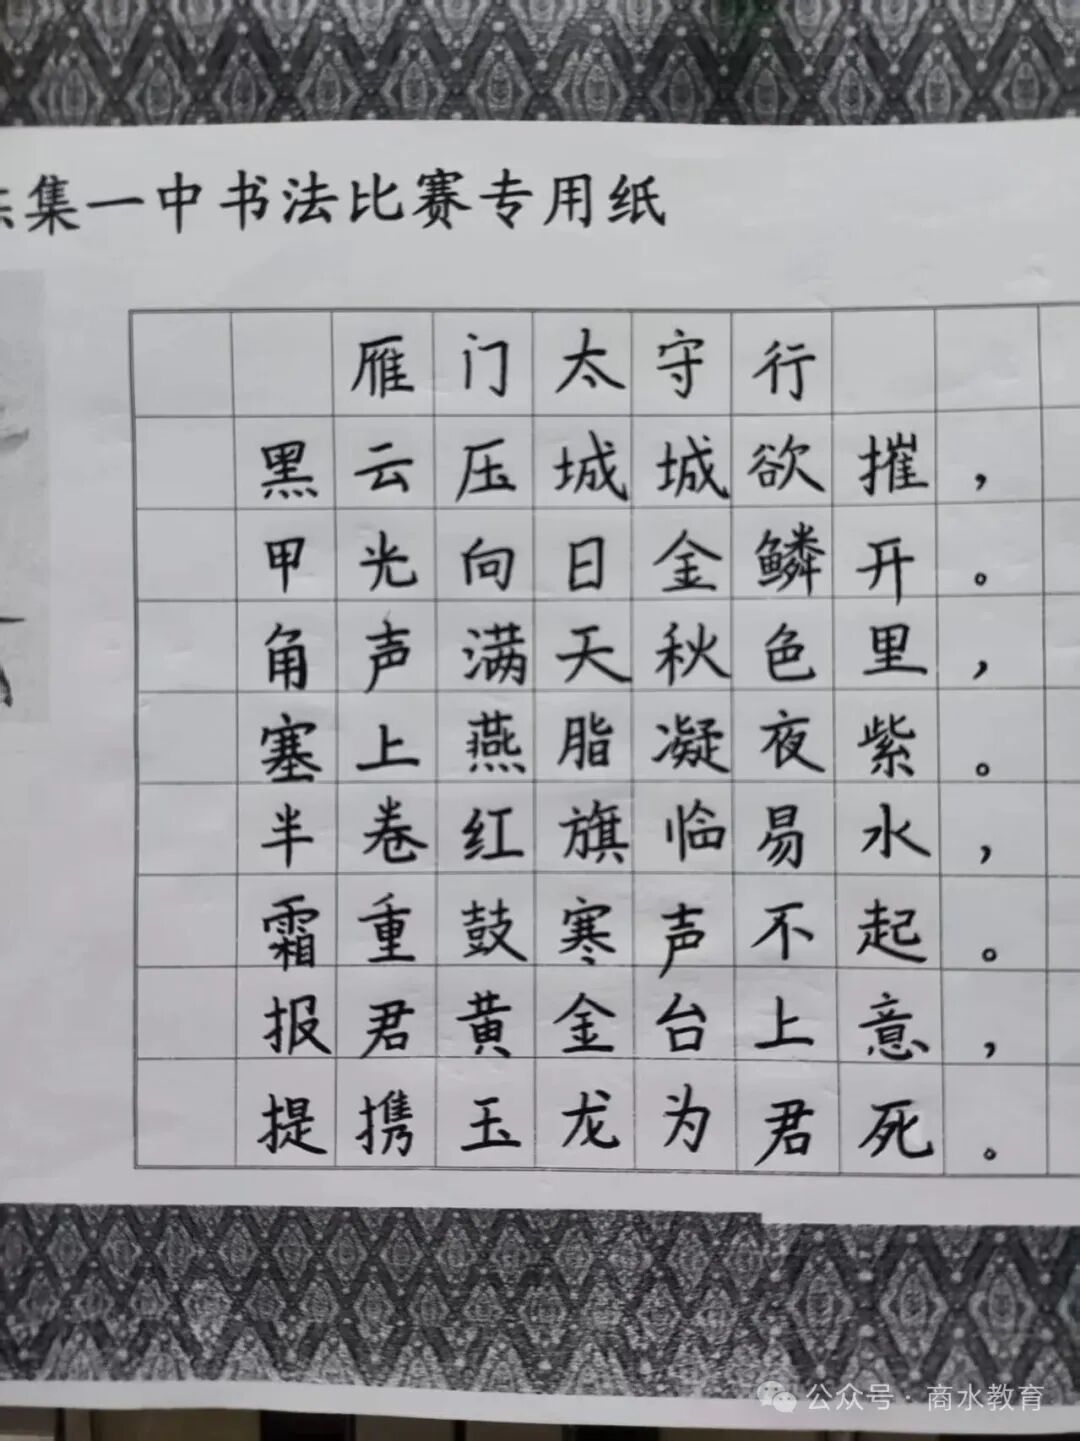 集一中书法比赛专用纸
雁门太守行
黑云压城城欲摧，
甲光向日金鳞开。
角声满天秋色里，
塞上燕脂凝夜紫。
半卷红旗临易水，
霜重鼓寒声不起。
报君黄金台上意，
提携玉龙为君死。
公众号·商水教育